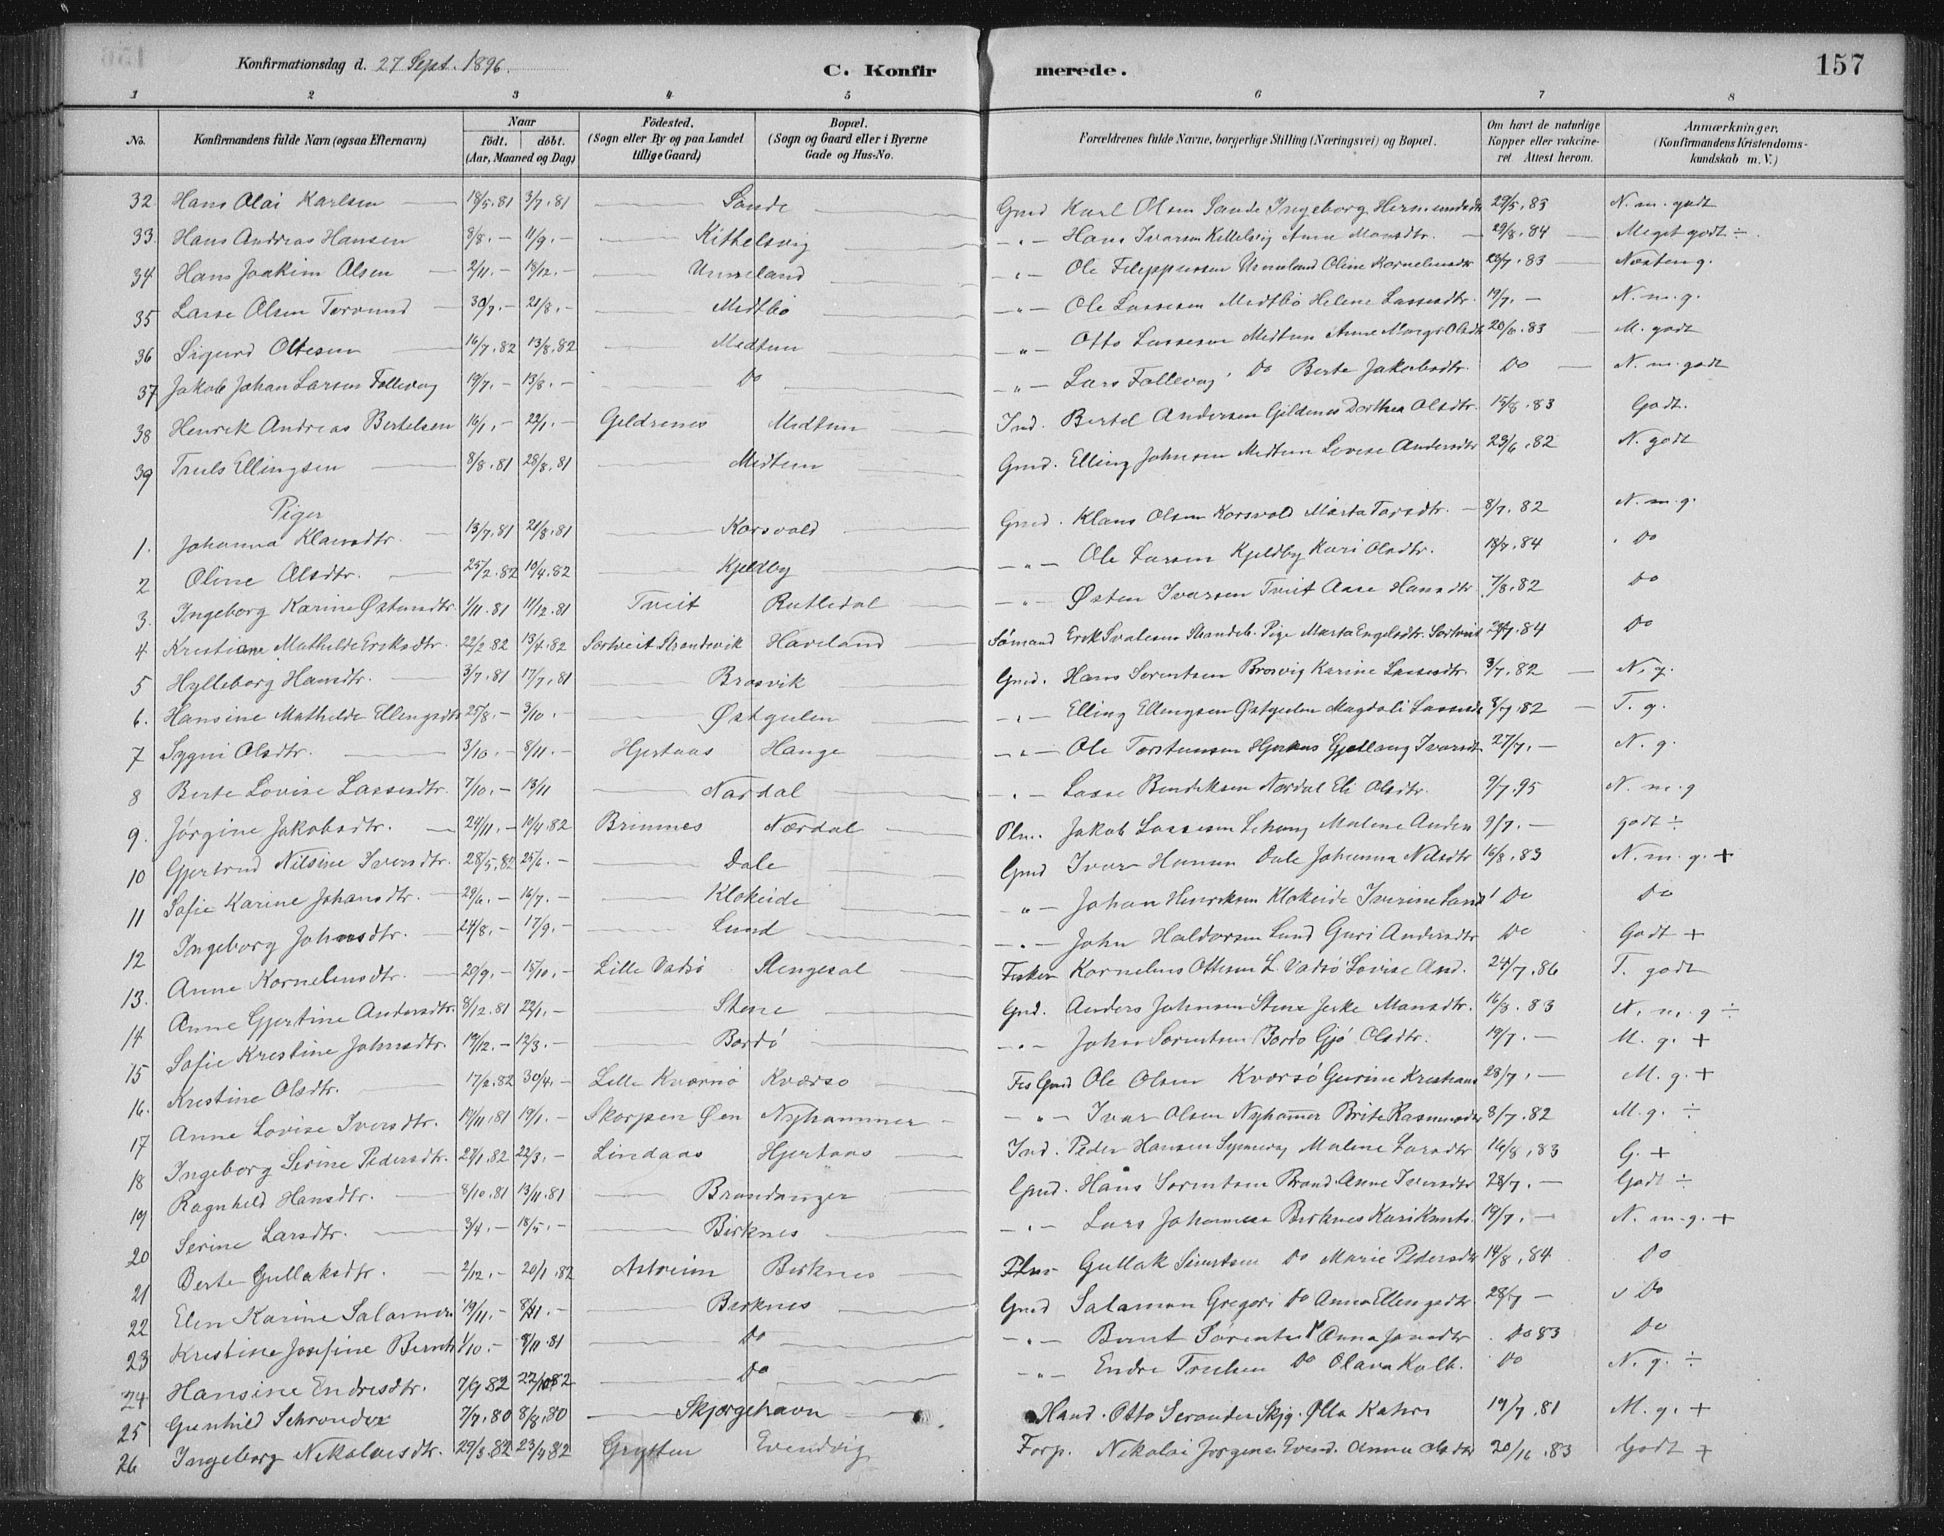 Konfirmationsdag d. 27 Sept. 1896.
C. Konfirmerede.
157
1 2 3 4 5 6 7 8
No. Konfirmandens fulde Navn (ogsaa Efternavn) Naar født. døbt. (Aar, Maaned og Dag) Fødested. (Sogn eller By og paa Landet tillige Gaard) Bopæl. (Sogn og Gaard eller i Byerne Gade og Hus-No. Forældrenes fulde Navne, borgerlige Stilling (Næringsvei) og Bopæl. Om havt de naturlige Kopper eller vakcineret. Attest herom. Anmærkninger, (Konfirmandens Kristendomskundskab m. V.)
32 Hans Olai Karlsen 18/5.81 3/7.81 Sande Gmd Karl Olsen Sande Ingeborg 29/5.83 N. m. godt
33. Hans Andreas Hansen 8/8.- 11/9.- Kittelsvig -"- Hans Ivarsen Kittelsvig Anne Monsdtr. 29/8.84 Meget godt ÷
34 Hans Joakim Olsen 2/11.- 18/12.- Unneland -"- Ole Filippussen Unneland Oline Korneliusdtr 23/7.83 Næsten g.
35 Lasse Olsen Torvund 30/7.- 21/8.- Medtbö -"- Ole Lassesen Medtbö Helene Lassesdtr. 19/7.- N. m. g.
36 Sigurd Ottesen 16/7.82 13/8.82 Medtun -"- Otto Lassesen Medtun Anne Margr. Olsdt 20/6.83 M. godt
37 Jakob Johan Larsen Follevag 19/7.- 13/8.- Do -"- Lars Follevag Do Berte Jakobsdtr. Do N. m. godt
38 Henrik Andreas Bertelsen 16/1.- 22/1.- Geldrenes Medtun Ind. Bertel Andersen Gildenes Dorthea Olsdtr. 15/8.83 Godt.
39 Truls Ellingsen 8/8.81 28/8.81 Medtun Gmd. Elling Johnsen Medtun Lovise Andersdtr 23/6.82 N. godt
Piger
1. Johanna Klausdtr. 13/7.81 21/8.81 Korsvold Gmd. Klaus Olsen Korsvold Marta Torsdtr. 8/7.82 N. m. g.
2 Oline Olsdtr. 25/2.82 10/4.82 Kjeldby -"- Ole Larsen Kjeldby Kari Olsdtr. 18/7.84 Do
3. Ingeborg Karine Østensdtr. 1/11.81 11/12.81 Tveit Rutledal -"- Østen Ivarsen Tveit Aase Hansdtr 7/8.82 Do
4 Kristiane Mathilde Eriksdtr. 22/2.82 13/4.82 Sortveit Strandevik Haveland Sømand Erik Pige Marta Engelsdtr. Sortveit .84 Do
5 Hylleborg Hansdtr. 3/7.81 17/7.81 Brosvik Gmd. Hans Sørentsen Brosvig Karine Lassesdtr. 3/7.82 N. g.
6. Hansine Mathilde Ellingsdtr 25/8.- 3/10.- Østgulen -"- Elling Ellingsen Østgulen Magdali Lassesd 8/7.82 T. g.
7 Sygni Olsdtr. 3/10.- 8/11.- Hjertaas Hauge -"- Ole Torstensen Hjertaas Gjellaug Ivarsdt 27/7.- N. g.
8 Berte Lovise Lassesdtr. 7/10.- 13/11 Nordal -"- Lasse Bendiksen Nordal Eli Olsdtr. 9/7.95 N. m. g
9. Jørgine Jakobsdtr. 24/11.- 19/4.82 Brimnes Nærdal Plm. Jakob Lassesen Malene Anden 9/7.- godt ÷
10 Gjertrud Nilsine Iversdtr. 28/5.82 25/6.- Dale Gmd Ivar Dale Johanna Nilsdtr 16/8.83 N. m. g. +
11 Sofie Karine Johansdtr. 29/6.- 16/7.- Klokeide -"- Johan Henriksen Klokeide Iverine Do Do
12 Ingeborg Johnsdtr. 24/8.- 17/9.- Lund -"- John Haldorsen Lund Guri Andersdtr Do Godt +
13. Anne Kornelensdtr. 20/9.- 15/10.- Lille Vadsö Stengesal Fisker Kornelius Ottesen L. Vadsö Lovise And. 24/7.86 T. godt
14 Anne Gjertine Andersdtr. 8/12.81 22/1.- Stene Gmd. Anders Johnsen Stene Monsdtr. 16/8.83 N. m. g ÷
15 Sofie Kristine Johnsdtr. 19/12.- 12/3.- Bordö -"- John Sørentsen Bordo Gjö Olsdtr. 19/7.- M. g. +
16. Kristine Olsdtr. 17/2.82 30/4.- Lille Kværnö Kværsø Fis Gmd Ole Olsen Kværsö Gurine Kristians 28/7.- M. g. +
17 Anne Lovise Iversdtr. 19/11.81 19/1.- Skorpen Øen Nyhammer -"- Ivar Olsen Nyham̄er Brite Rasmusdtr 8/7.82 M. g. ÷
18 Ingeborg Serine Pedersdtr. 27/1.82 22/3.- Lindaas Hjertaas Ind. Peder Hansen Malene Larsdtr 16/8.83 G. +
19 Ragnhild Hansdtr. 8/10.81 13/11.81 Brandanger Gmd. Hans Sørentsen Brand. Anne Iversdtr 28/7.- Godt ÷
20 Serine Larsdtr. 3/4.- 18/5.- Birknes -"- Lars Johannesen Birknes Kari Knuts. 19/7.- N. m. g. +
21 Berte Gullaksdtr. 2/12.- 20/1.82 Astreim Birknes Gullak Sivertsen Do Marie Pedersdtr 14/8.84 Do
22 Elen Karine Salamon 19/11.- 8/11.- Birknes Gmd Salamon Gregori Do Anna Ellingsdtr. 28/7- Do
23 Kristine Josefine Bernts 1/10.- 8/11.81 Do -"- Bernt Sørents Do Anna Jonsdtr . Do 83 Do
24 Hansine Endresdtr. 7/9.82 22/10.82 Do -"- Endre Trulsen Do Olava Kolb. Do N. g. ÷
25 Gunhild Schrønder 7/7.80 8/8.80 Skjærgehavn Hand. Otto Skjg. Olla Kathr. 19/7.81 M. g. +
26 Ingeborg Nikolaisdtr. 29/3.82 23/4.82 Grytten Evendvig Forp. Nikolai Jørgens Evend. Anna Olsdtr 20/16.83 Godt +